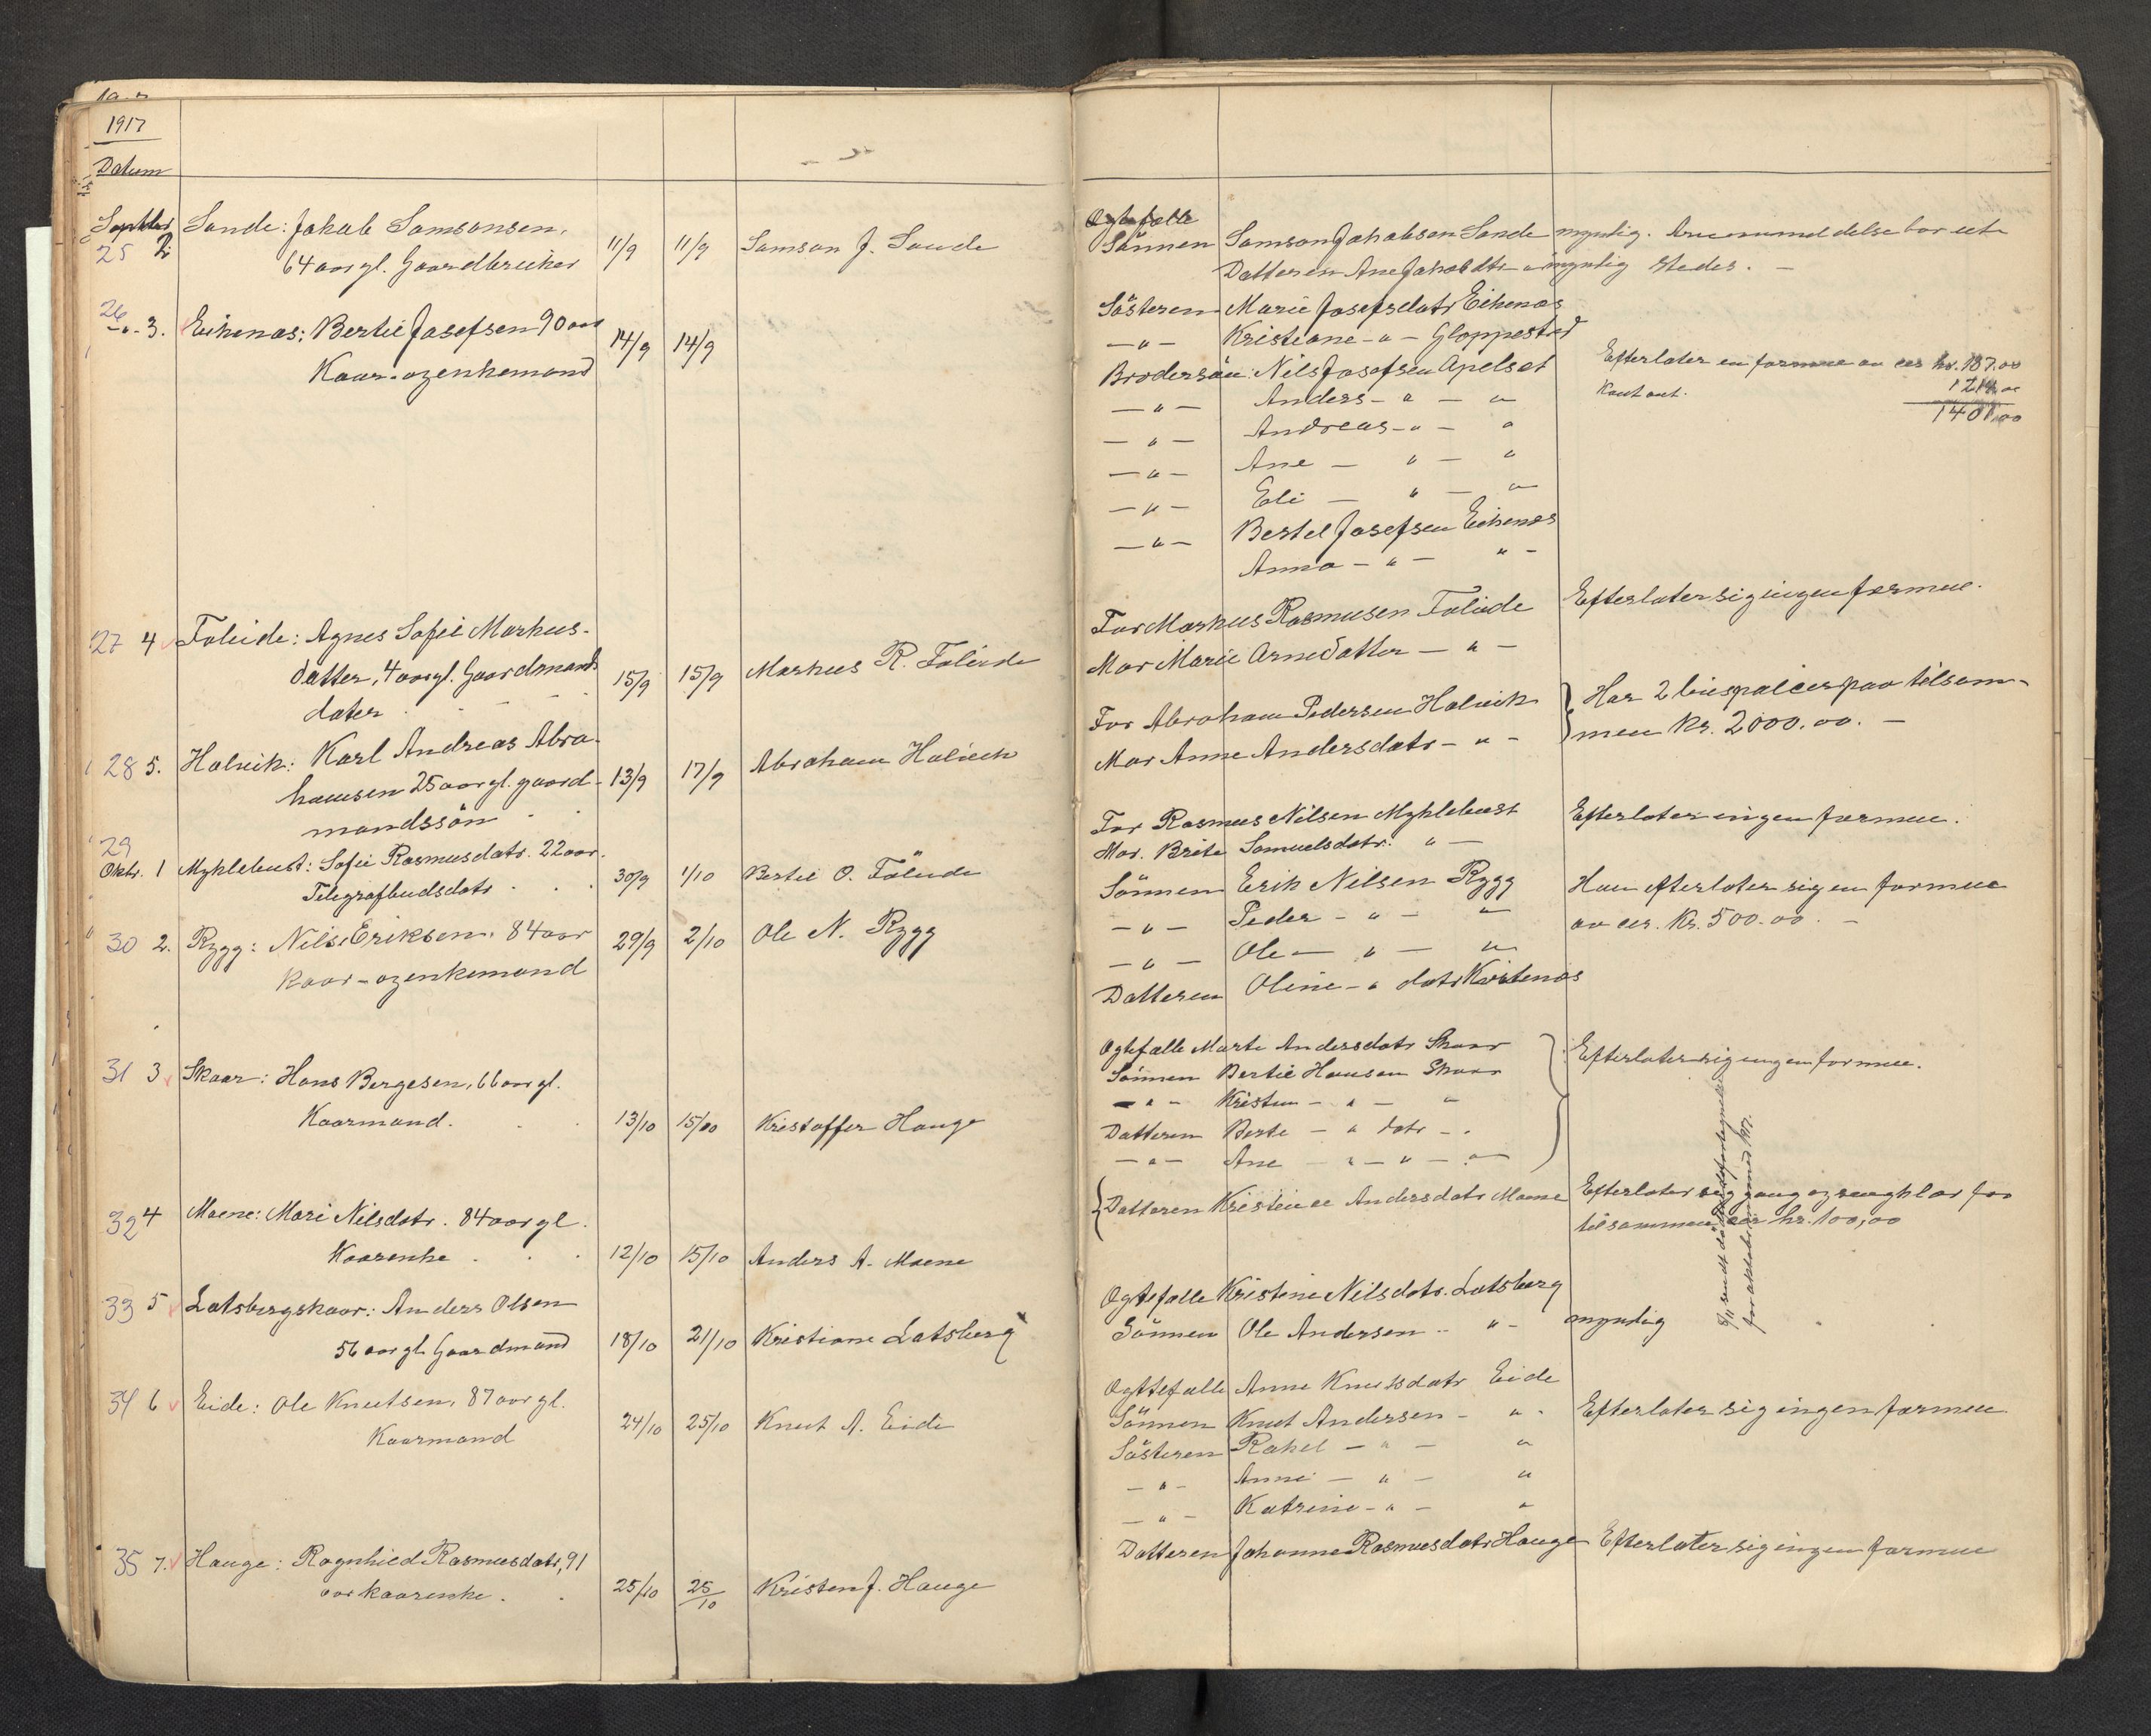 1917
Datum
Septbr 2
25
Sande: Jakob Samsonsen,
64 aar gl. Gaardbruker
11/9
11/9
Samson J. Sande
26
-"- 3.
Eikenæs: Bertil Josefsen 90 aar
Kaar- og enkemand
14/9
14/9
27 4
Faleide: Agnes Sofie Markus-
datter, 4 aar gl. Gaardmands
dater
15/9
15/9
Markus R. Faleide
28 5.
Holvik: Karl Andreas Abra-
hamsen 25 aar gl. gaard-
mandssön
13/9
17/9
Abraham Holvik
29
Oktr. 1
Myklebust: Sofie Rasmusdatr. 22 aar.
Telegrafbudsdatr
30/9
1/10
Bertel O. Föleide
30 2.
Rygg: Nils Eriksen. 84 aar
kaar- og enkemand
29/9
2/10
Ole N. Rygg
31 3
Skaar: Hans Bergesen, 66 aar gl.
Kaarmand.
13/10
15/10
Kristoffer Hauge
32 4
Moene: Mari Nilsdatr. 84 aar gl.
Kaarenke
12/10
15/10
Anders A. Moene
33 5
Lotsbergskaar: Anders Olsen
56 aar gl. Gaardmand
18/10
21/10
Kristiane Lotsberg
34 6
Eide: Ole Knutsen, 87 aar gl.
Kaarmand
24/10
25/10
Knut A. Eide
35 7.
Hauge: Ragnhild Rasmusdatr, 91
aar kaarenke.
25/10
25/10
Kristen J. Hauge
Ogtefælle
Sönnen Samson Jakobsen Sande myndig.
Datteren Ane Jakobdtr - " myndig stedes. -
Sösteren Marie Josefsdatr Eikenæs
-"- Kristiane - " - Gloppestad
Brodersön: Nils Josefsen Apelset
-"- Anders - " - "
-"- Andreas - " - "
-"- Ane - " - "
-"- Eli - " - "
-"- Bertel Josefsen Eikenæs
Anna - " - " -
Efterlater en formue av cer kr. 187.00
Kontant. 1214.00
1401.00
Far Markus Rasmusen Faleide
Mor Marie Arnedatter - " -
Efterlater sig ingen formue.
Far Abraham Pedersen Holvik
Mor Anne Andersdatr - " -
Har 2 livspoliser paa tilsam-
men kr. 2000.00. -
Far Rasmus Nilsen Myklebust
Mor. Brite Samuelsdatr. " -
Efterlater ingen formue.
Sönnen Erik Nilsen Rygg
-"- Peder - " - "
-"- Ole - " - "
Datteren Oline - " datr Kvitenæs
Han efterlater sig en formue
av cer. Kr. 500.00. -
Ogtefælle Marte Andersdatr Skaar
Sönnen Bertil Hansen Skaar
-"- Kristen - " - "
Datteren Berte - " datr - .
-"- Ane - " - " - "
Efterlater sig ingen formue.
Datteren Kristine Andersdatr Moene
Efterlater sig gang og sengklær for
tilsammen cer kr. 100,00
sendt dödsfaldsfortegnelse
for oktober maaned 1917.
Ogtefælle Kristine Nilsdatr. Lotsberg
Sönnen Ole Andersen - " - myndig
Ogttefælle Anne Knutsdatr Eide
Sönnen Knut Andersen - " -
Sösteren Rakel - " - "
-"- Anne - " - "
-"- Katrine - " - "
Efterlater sig ingen formue
Datteren Johanne Rasmusdatr Hauge
Efterlater sig ingen formue